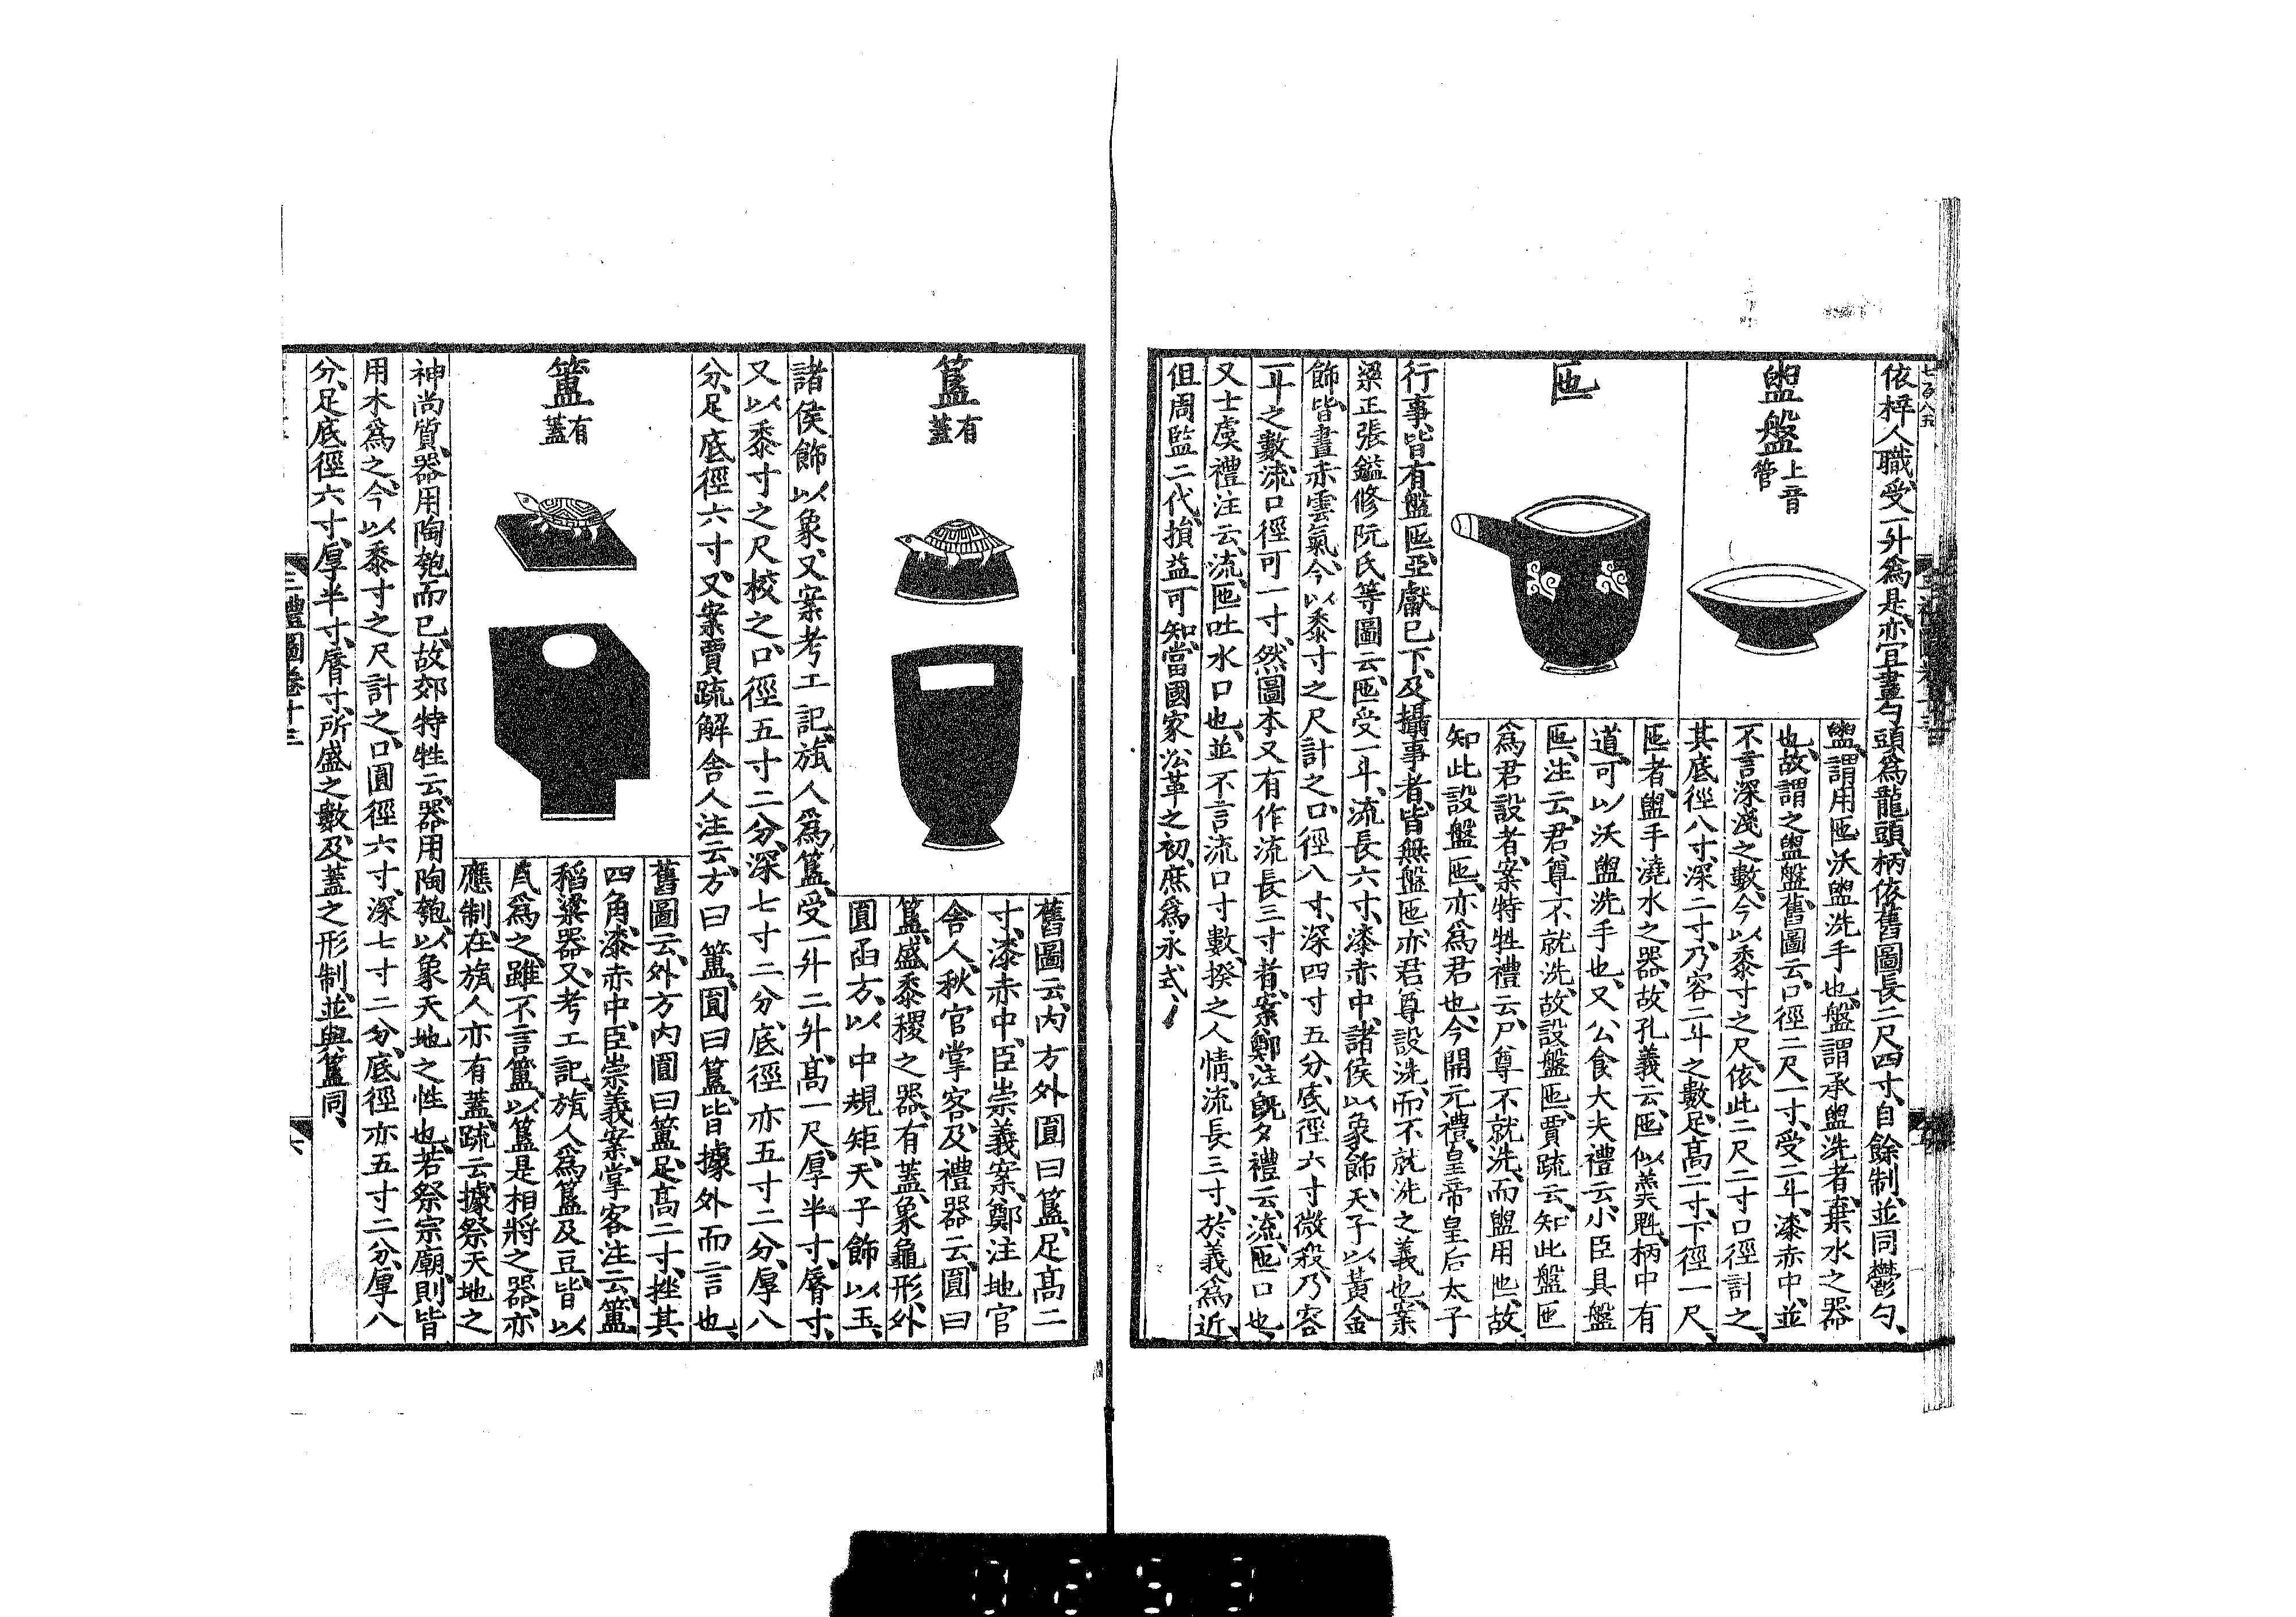 依梓人職受一升爲是亦宜畫勺頭爲龍頭柄依舊圖長二尺四寸自餘制並同鬱勺
盥盤
上音
管
盥謂用匜沃盥洗手也盤謂承盥洗者棄水之器
也故謂之盥盤舊圖云口徑二尺一寸受二斗漆赤中並
不言深淺之數今以黍寸之尺依此二尺二寸口徑計之
其底徑八寸深二寸乃容二斗之數足高二寸下徑一尺
匜
匜者盥手澆水之器故孔義云匜似羹魁柄中有
道可以沃盥洗手也又公食大夫禮云小臣具盤
匜注云君尊不就洗故設盤匜賈疏云知此盤匜
爲君設者案特牲禮云尸尊不就洗而盥用匜故
知此設盤匜亦爲君也今開元禮皇帝皇后太子
行事皆有盤匜亞獻已下及攝事者皆無盤匜亦君尊設洗而不就洗之義也案
梁正張鎰修阮氏等圖云匜受一斗流長六寸漆赤中諸侯以象飾天子以黃金
飾皆畫赤雲氣今以黍寸之尺計之口徑八寸深四寸五分底徑六寸微殺乃容
一斗之數流口徑可一寸然圖本又有作流長三寸者案鄭注既夕禮云流匜口也
又士虞禮注云流匜吐水口也並不言流口寸數揆之人情流長三寸於義爲近
但周監二代損益可知當國家㳂革之初庶爲永式
簋
有
蓋
舊圖云內方外圓曰簋足高二
寸漆赤中臣崇義案鄭注地官
舍人秋官掌客及禮器云圓曰
簋盛黍稷之器有蓋象龜形外
圓函方以中規矩天子飾以玉
諸侯飾以象又案考工記旊人爲簋受一升二升高一尺厚半寸脣寸
又以黍寸之尺校之口徑五寸二分深七寸二分底徑亦五寸二分厚八
分足底徑六寸又案賈疏解舍人注云方曰簠圓曰簋皆據外而言也
簠
有
蓋
舊圖云外方內圓曰簠足高二寸挫其
四角漆赤中臣崇義案掌客注云簠
稻粱器又考工記旊人爲簋及豆皆以
瓦爲之雖不言簠以簋是相將之器亦
應制在旊人亦有蓋疏云據祭天地之
神尚質器用陶匏而已故郊特牲云器用陶匏以象天地之性也若祭宗廟則皆
用木爲之今以黍寸之尺計之口圓徑六寸深七寸二分底徑亦五寸二分厚八
分足底徑六寸厚半寸脣寸所盛之數及蓋之形制並與簋同
三禮圖卷十三
六